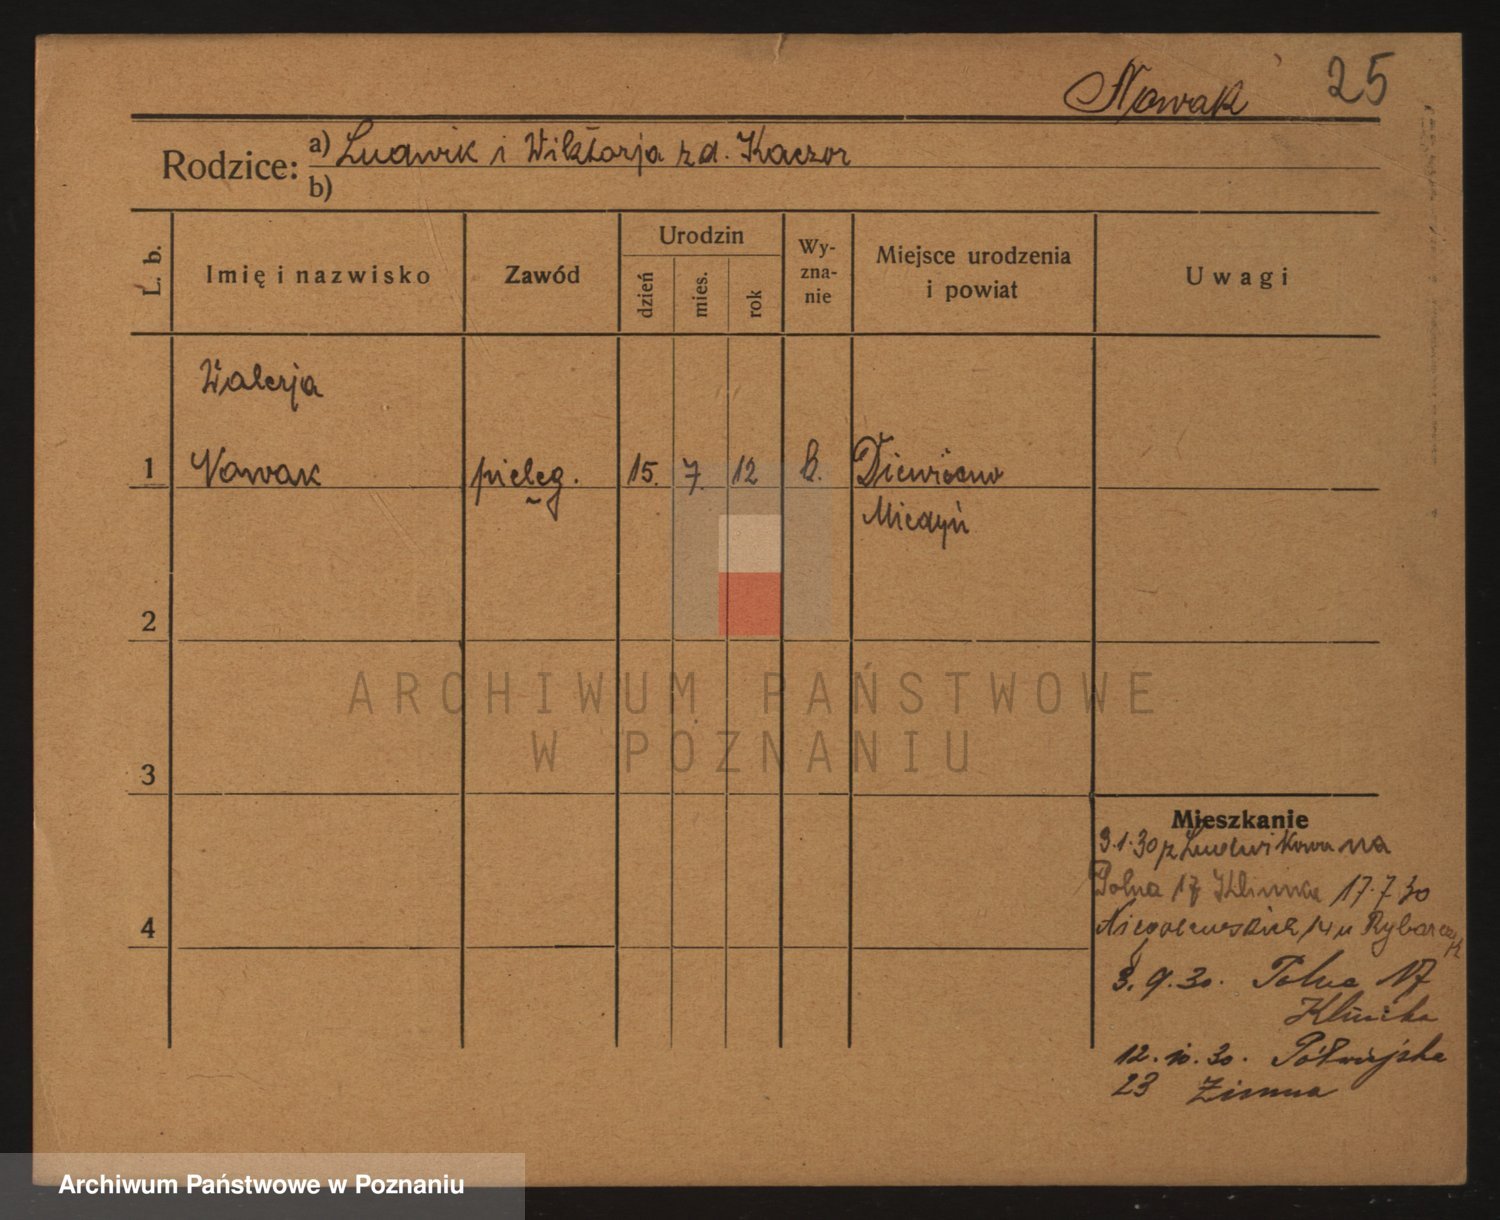 Nowak 25
Rodzice: a) Ludwik i Wiktorja z d. Kaczor
b)
L. b.
Imię i nazwisko
Zawód
Urodzin
dzień
mies.
rok
Wy-
zna-
nie
Miejsce urodzenia
i powiat
Uwagi
Walerja
1 Nowak pielęg. 15. 7. 12 k.
Miedzyń
2
3
4
ARCHIWUM PAŃSTWOWE
W POZNANIU
Mieszkanie
3.1.30 z Ludwikowa na
Polna 17 Klinika 17.7.30
Niegolewskich 14 u Rybarczyk
3. 9. 30. Polna 17
Klinika
12. 10. 30. Półwiejska
23 Zimna
Archiwum Państwowe w Poznaniu